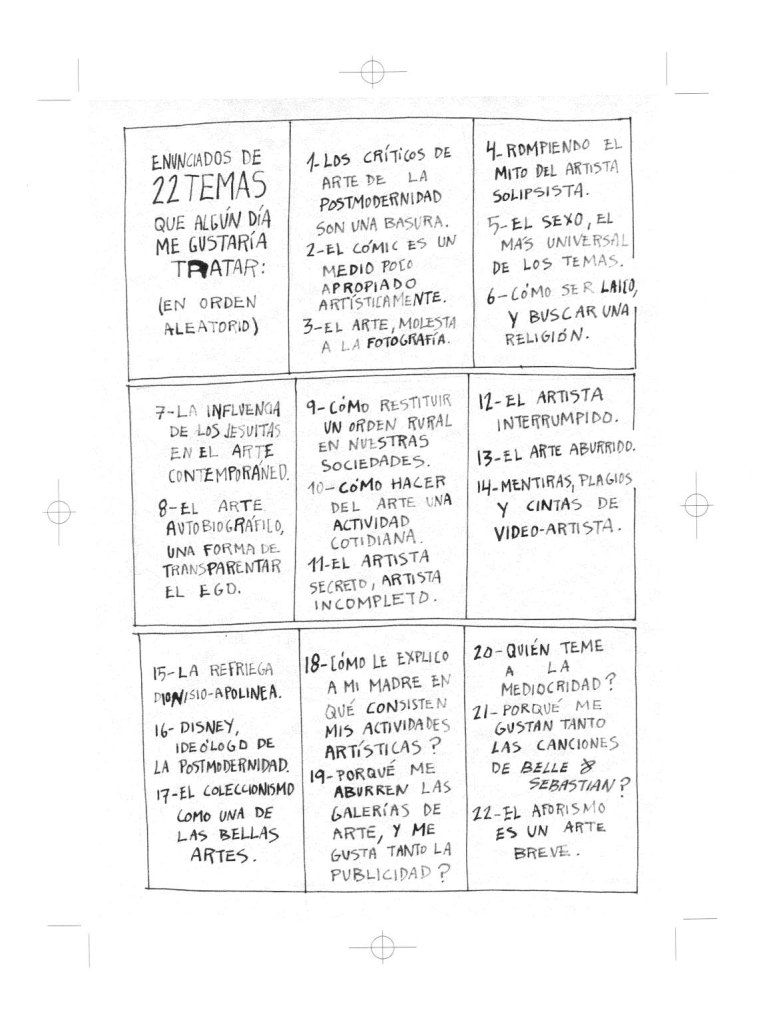 ENUNCIADOS DE
22 TEMAS
QUE ALGÚN DÍA
ME GUSTARÍA
TRATAR:
(EN ORDEN
ALEATORIO)
1-LOS CRÍTICOS DE
ARTE DE LA
POSTMODERNIDAD
SON UNA BASURA.
2-EL CÓMIC ES UN
MEDIO POCO
APROPIADO
ARTÍSTICAMENTE.
3-EL ARTE, MOLESTA
A LA FOTOGRAFÍA.
4-ROMPIENDO EL
MITO DEL ARTISTA
SOLIPSISTA.
5-EL SEXO, EL
MÁS UNIVERSAL
DE LOS TEMAS.
6-CÓMO SER LAICO,
Y BUSCAR UNA
RELIGIÓN.
7-LA INFLUENCIA
DE LOS JESUITAS
EN EL ARTE
CONTEMPORÁNEO.
8-EL ARTE
AUTOBIOGRÁFICO,
UNA FORMA DE
TRANSPARENTAR
EL EGO.
9-CÓMO RESTITUIR
UN ORDEN RURAL
EN NUESTRAS
SOCIEDADES.
10-CÓMO HACER
DEL ARTE UNA
ACTIVIDAD
COTIDIANA.
11-EL ARTISTA
SECRETO, ARTISTA
INCOMPLETO.
12-EL ARTISTA
INTERRUMPIDO.
13-EL ARTE ABURRIDO.
14-MENTIRAS, PLAGIOS
Y CINTAS DE
VIDEO-ARTISTA.
15-LA REFRIEGA
DIONISIO-APOLINEA.
16-DISNEY,
IDEÓLOGO DE
LA POSTMODERNIDAD.
17-EL COLECCIONISMO
COMO UNA DE
LAS BELLAS
ARTES.
18-CÓMO LE EXPLICO
A MI MADRE EN
QUÉ CONSISTEN
MIS ACTIVIDADES
ARTÍSTICAS?
19-PORQUÉ ME
ABURREN LAS
GALERÍAS DE
ARTE, Y ME
GUSTA TANTO LA
PUBLICIDAD?
20-QUIÉN TEME
A LA
MEDIOCRIDAD?
21-PORQUÉ ME
GUSTAN TANTO
LAS CANCIONES
DE BELLE &
SEBASTIAN?
22-EL AFORISMO
ES UN ARTE
BREVE.